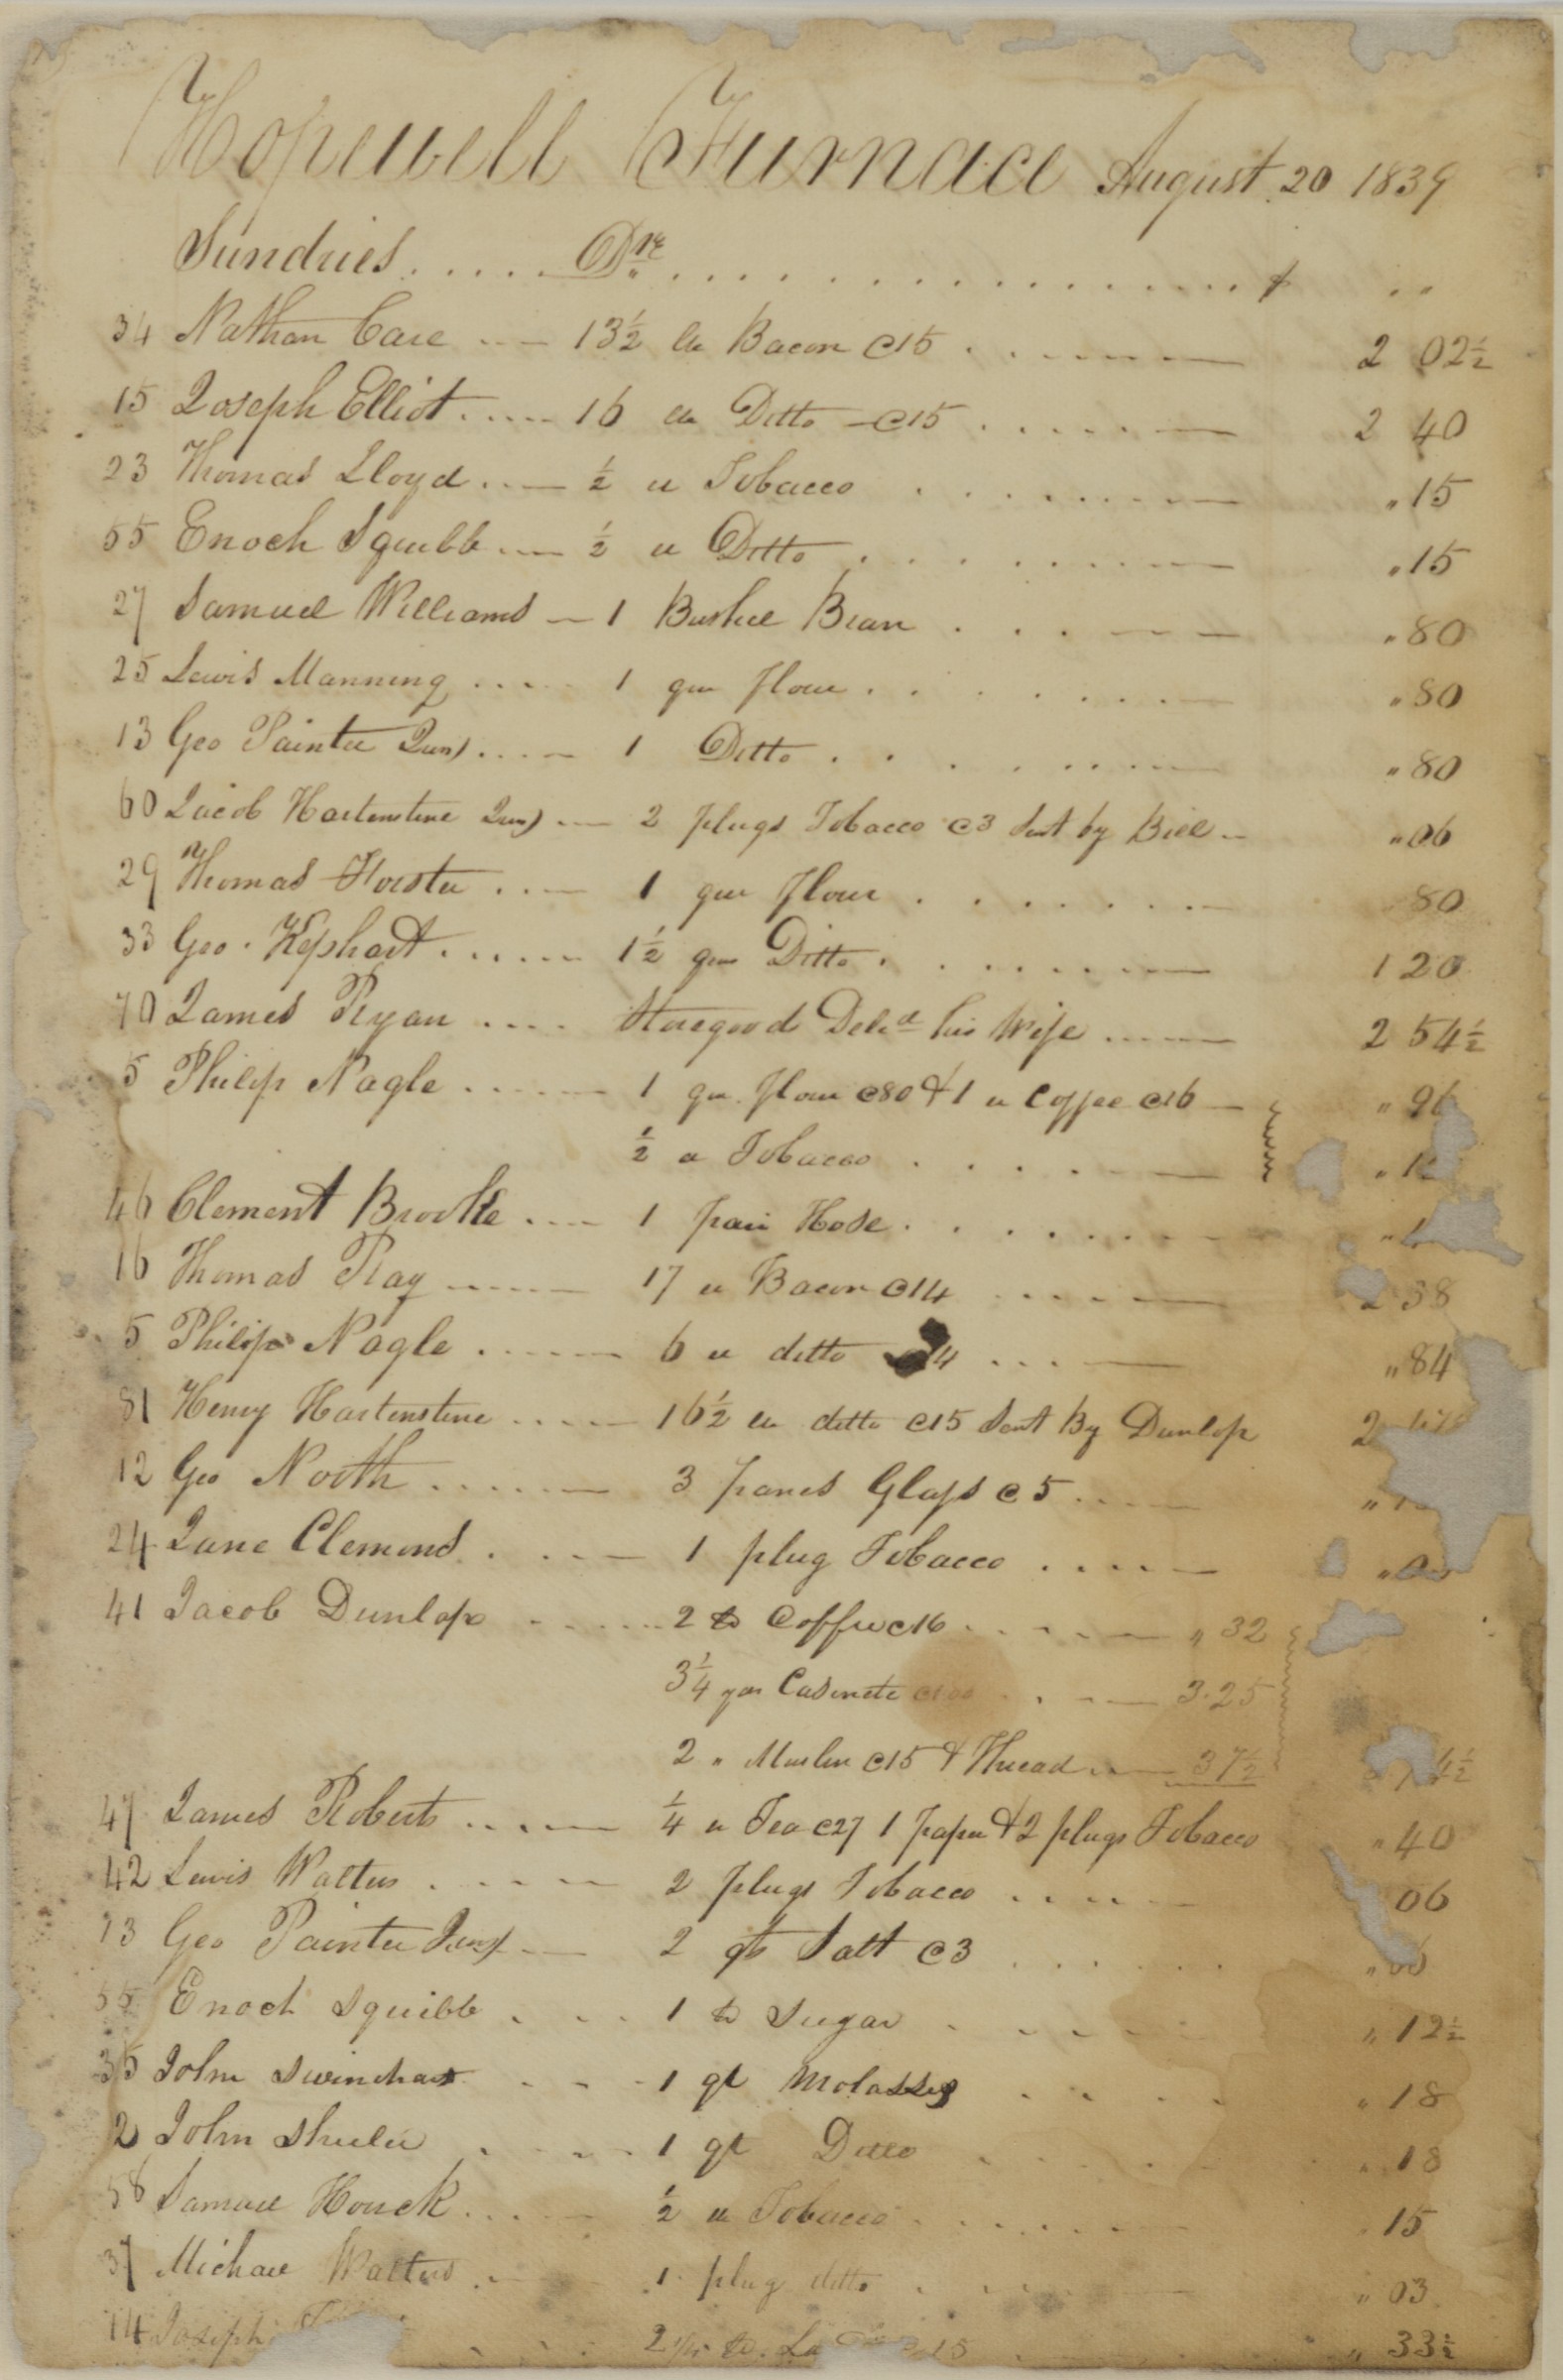 Hopewell Furnace August 20 1839
Sundries Dre $
34 Nathan Care 13½ lb Bacon @15 2 02½
15 Joseph Elliot 16 lb Ditto @15 2 40
23 Thomas Lloyd ½ lb Tobacco " 15
55 Enoch Squibb ½ lb Ditto " 15
27 Samuel Williams 1 Bushel Bran " 80
25 Lewis Manning 1 qur flour " 80
13 Geo Painter Junr 1 Ditto " 80
60 Jacob Hartenstine Junr 2 plugs Tobacco @3 Sent by Bill " 06
29 Thomas 1 qur flour 80
33 Geo. Kephart 1½ qur Ditto 1 20
70 James Ryan Storegood Deld his Wife 2 54½
5 Philip Nagle 1 qur flour @80 & 1 lb Coffee @16 " 96
½ lb Tobacco "
46 Clement Brooke 1 pair Hose "
16 Thomas Ray 17 lb Bacon @14 2 38
5 Philip Nagle 6 lb ditto 14 " 84
81 Henry Hartenstine 16½ lb ditto @15 Sent By Dunlop 2
12 Geo North 3 panes Glass @5 "
24 Jane Clemens 1 plug Tobacco "
41 Jacob Dunlap 2 lb Coffee @16 " 32
3¼ yds Casinete @100 3.25
2 " Muslin @15 & Thread 37½
47 James Roberts ¼ lb Tea @27 1 paper & 2 plugs Tobacco " 40
42 Lewis Walters 2 plugs Tobacco 06
13 Geo Painter Junr 2 qts Salt @3 " 06
55 Enoch Squibb 1 lb Sugar " 12½
35 John Swinehart 1 qt Molasses " 18
2 John Shuler 1 qt Ditto " 18
58 Samuel Houck ½ lb Tobacco 15
37 Michael Walters 1 plug ditto " 03
14 Joseph 2 " 33½